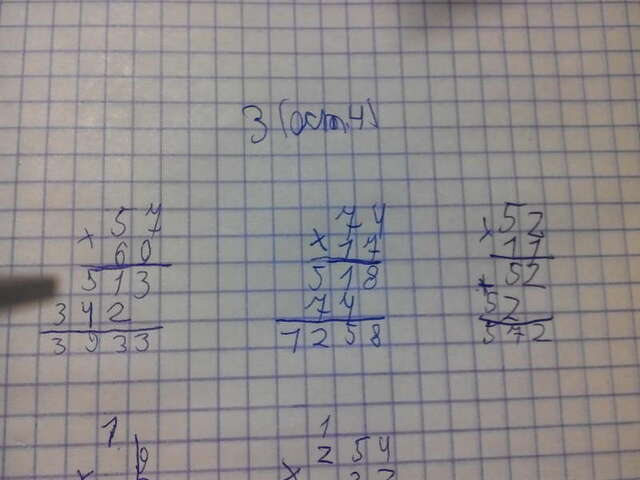 3 (ост.4)
57
× 60
513
342
3933
74
× 17
518
74
1258
52
× 11
+ 52
52
572
1
1
254
×